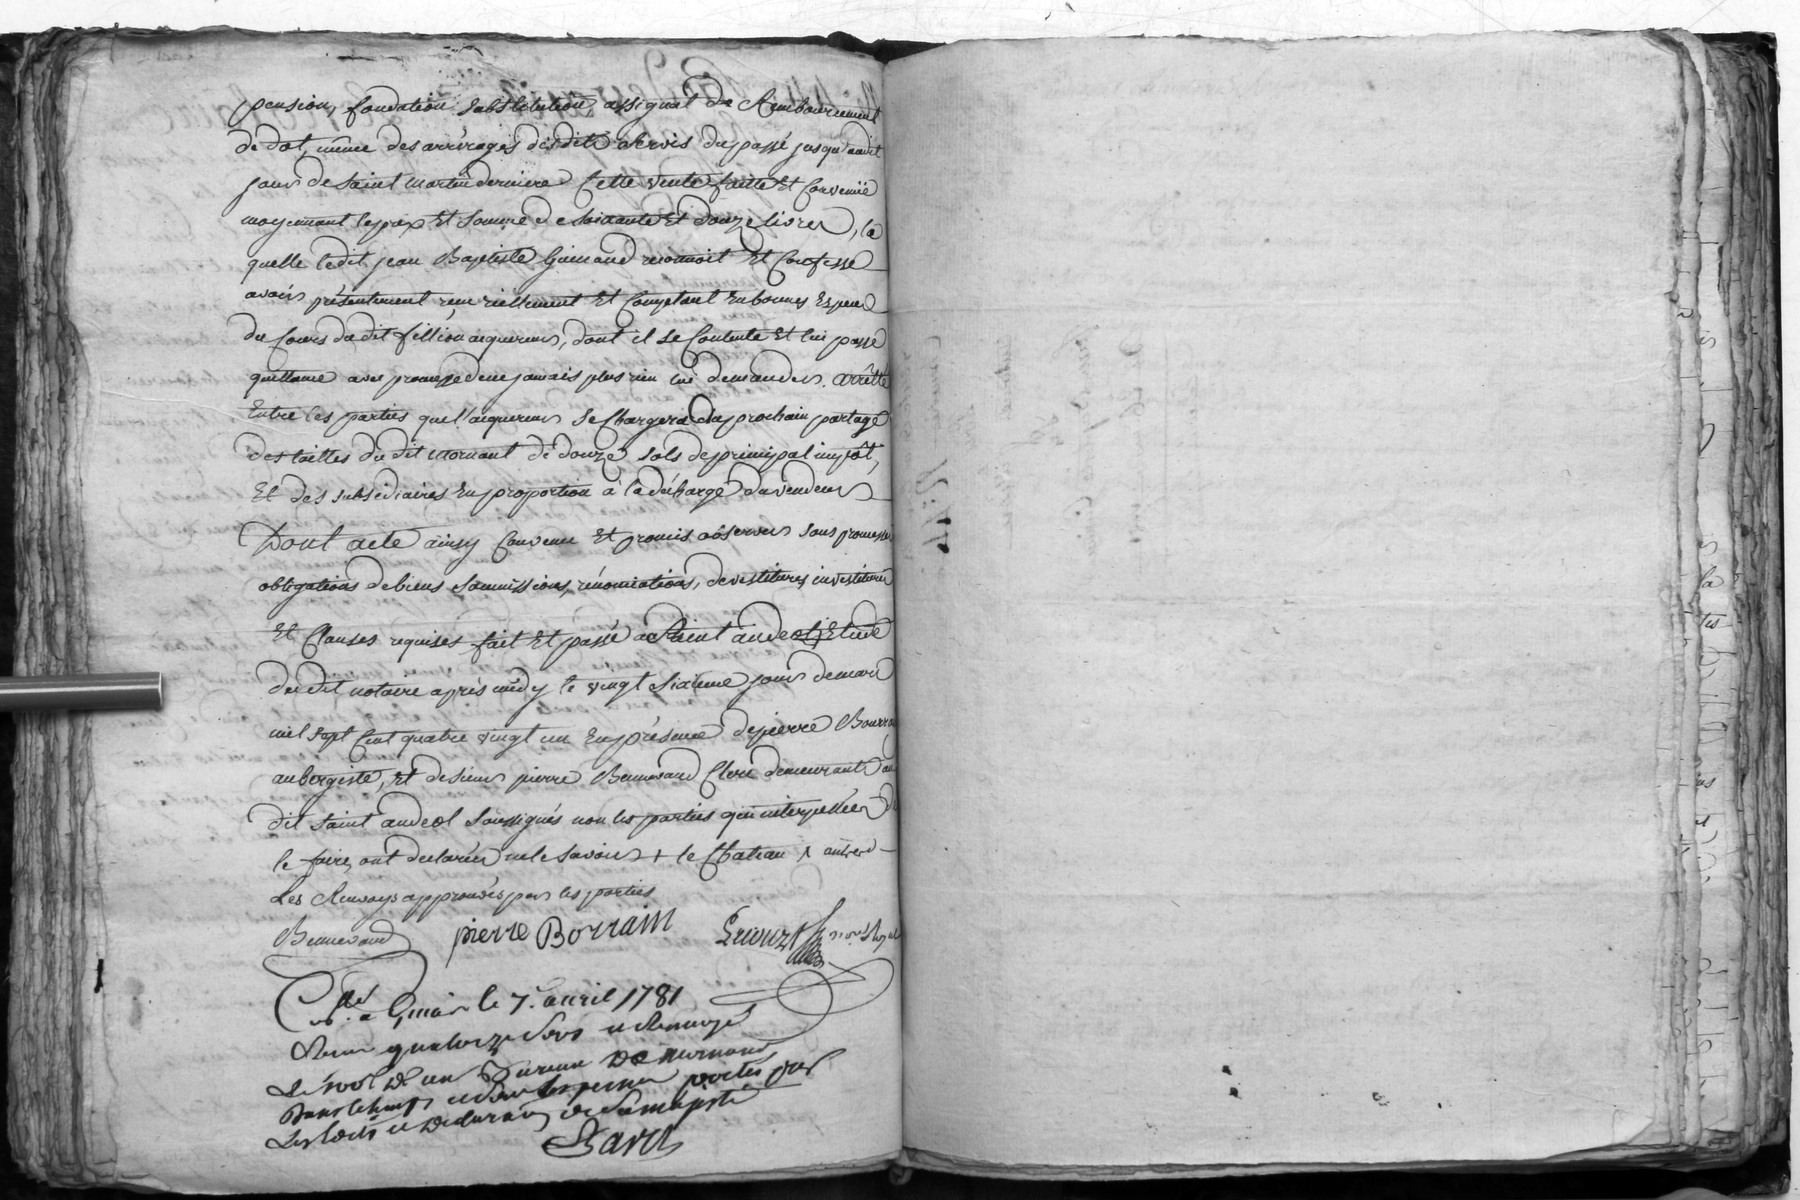 pension, fondation substitution assignat de Remboursement
de dot, meme des arrérages desdits servis du passé jusqu'audit
jour de saint martin derniere Cette vente faitte Et Convenüe
moyennant le prix Et somme de soixante Et douze livres, la
quelle ledit jean Baptiste Guinand reconnoit Et Confesse
avoir présentement reçu réellement Et Comptant En bonnes Especes
du Cours dudit fillion acquereur, dont il se Contente Et lui passe
quittance avec promesse de ne jamais plus rien lui demander. arrêtté
Entre les parties que l'acquereur se Chargera au prochain partage
des tailles du dit mornant de douze sols de principal impôt,
Et des subsidiaires En proportion à la décharge du vendeur
Dont acte ainsy Convenu Et promis observer sous promesses
obligations de biens soumissions, rénonciations, devestitures, investitures
Et Clauses requises fait Et passé a Saint andeol Etude
du dit notaire après midy le vingt sixieme jour de mars
mil sept Cent quatre vingt un En présence de pierre Bourrain
aubergiste, Et de sieur pierre Clerc demeurants au
dit saint andeol soussignés non les parties qui interpellées de
le faire ont declarées ne le savoir + le Chateau
Les Renvoys approuvés par les parties
pierre Borrain
le 7. avril 1781
quatorze sous
Le de un Bureau De mornant
portés par
Les et de sa majesté